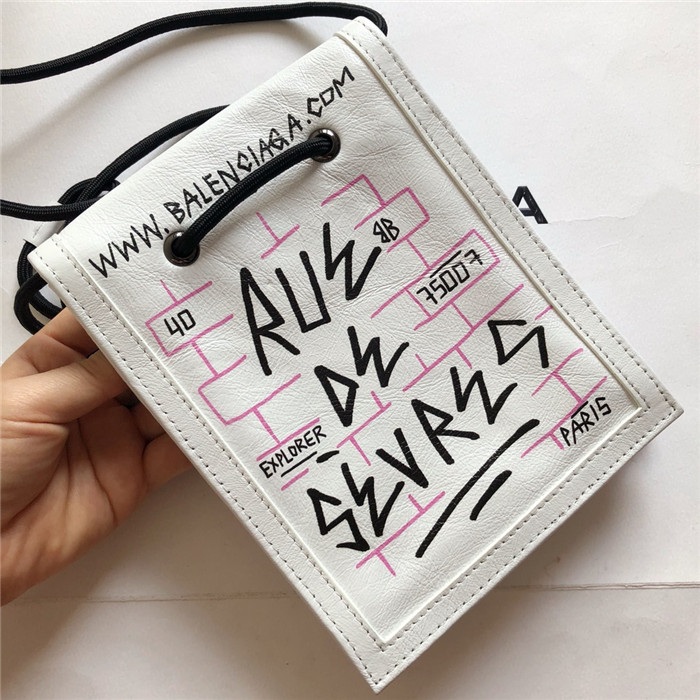 WWW.BALENCIAGA.COM
BB
RUE
75007
40
DE
EXPLORER
SEVRES
PARIS
A